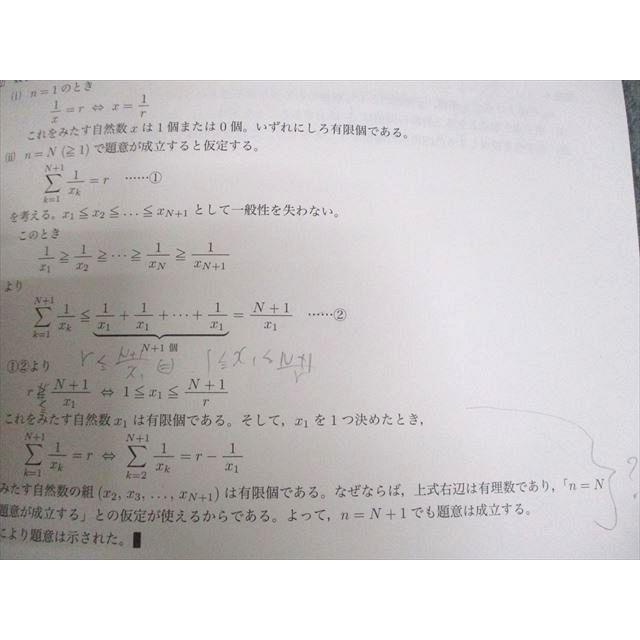 (i) n = 1 のとき
1/x = r ⇔ x = 1/r
これをみたす自然数 x は 1 個または 0 個。いずれにしろ有限個である。
(ii) n = N (≧ 1) で題意が成立すると仮定する。
∑_{k=1}^{N+1} 1/x_k = r ……①
を考える。x_1 ≦ x_2 ≦ … ≦ x_{N+1} として一般性を失わない。
このとき
1/x_1 ≧ 1/x_2 ≧ ⋯ ≧ 1/x_N ≧ 1/x_{N+1}
より
∑_{k=1}^{N+1} 1/x_k ≦ 1/x_1 + 1/x_1 + ⋯ + 1/x_1 = (N+1)/x_1 ……②
N+1 個
①②より
r ≦ (N+1)/x_1 ⇔ 1 ≦ x_1 ≦ (N+1)/r
これをみたす自然数 x_1 は有限個である。そして，x_1 を 1 つ決めたとき，
∑_{k=1}^{N+1} 1/x_k = r ⇔ ∑_{k=2}^{N+1} 1/x_k = r − 1/x_1
みたす自然数の組 (x_2, x_3, …, x_{N+1}) は有限個である。なぜならば，上式右辺は有理数であり，「n = N
題意が成立する」との仮定が使えるからである。よって，n = N + 1 でも題意は成立する。
により題意は示された。
?